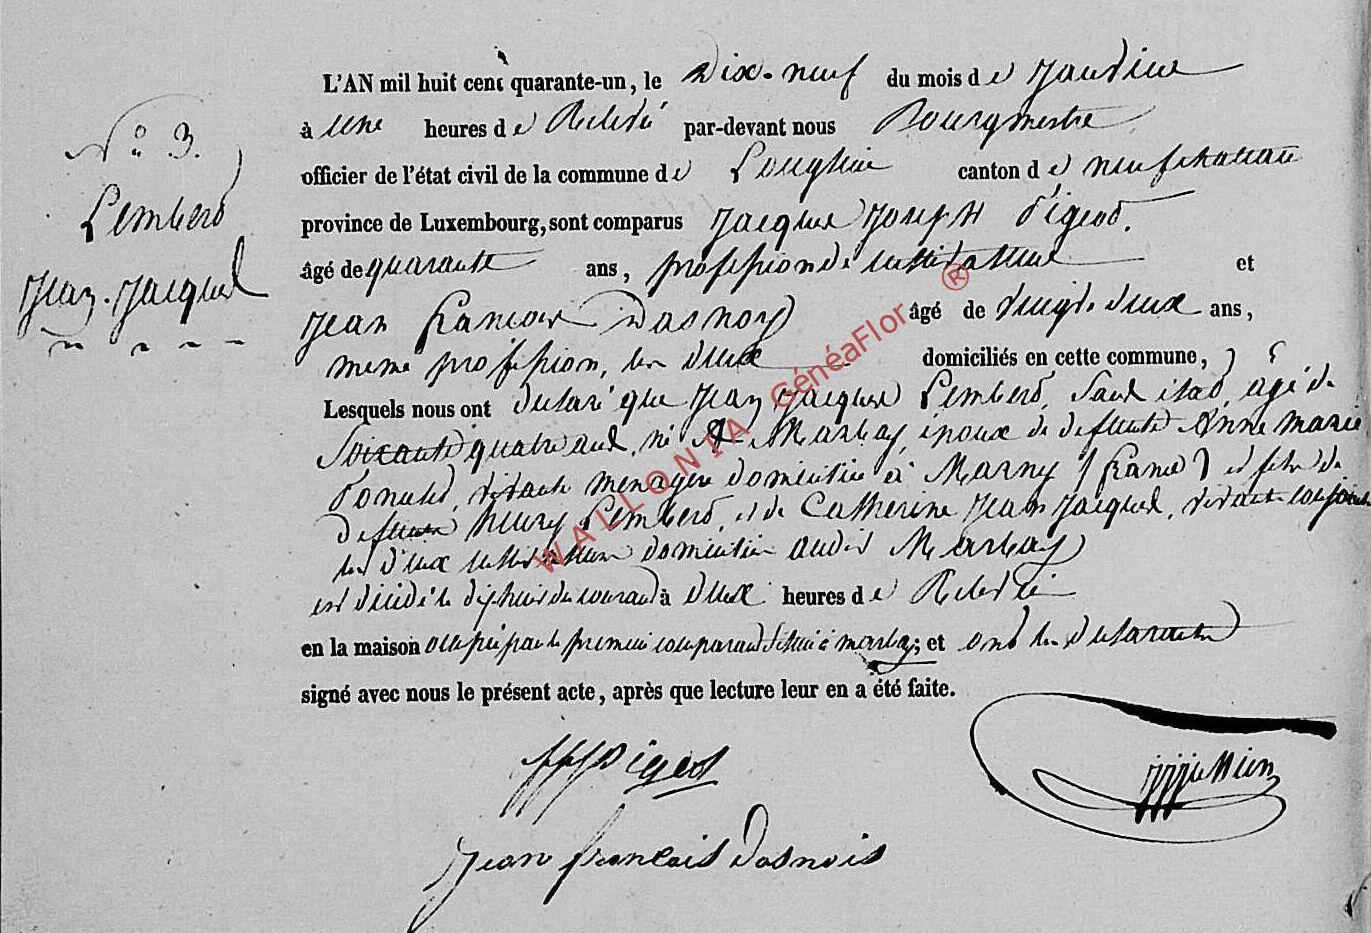 N° 3.
Lemberd
Jean-Jacques
L'AN mil huit cent quarante-un, le Dix-neuf du mois de Janvier
à une heures de Relevé par-devant nous Bourgmestre
officier de l'état civil de la commune de Longlier canton de neufchateau
province de Luxembourg, sont comparus Jacques Joseph Pigeot.
âgé de quarante ans, profession de cultivateur et
Jean françois Dasnoy âgé de vingt deux ans,
meme profession, les deux domiciliés en cette commune,
Lesquels nous ont declaré que Jean Jacques Lemberd, sans etat, agé de
Soixante quatre ans, né à Marbay, époux de defunte Anne Marie
vivante menagere domiciliée à Marny (france) et fils de
defunts henry Lemberd, et de Catherine Jean Jacques, vivants conjoints
les deux cultivateurs domiciliés audit Marbay
est décédé le dix huit du courant à deux heures de Relevée
en la maison occupée par le premier comparant située à marbay; et ont les declarants
signé avec nous le présent acte, après que lecture leur en a été faite.
JJ Pigeot
Jean françois dasnois
WALLONIA GénéaFlor ®